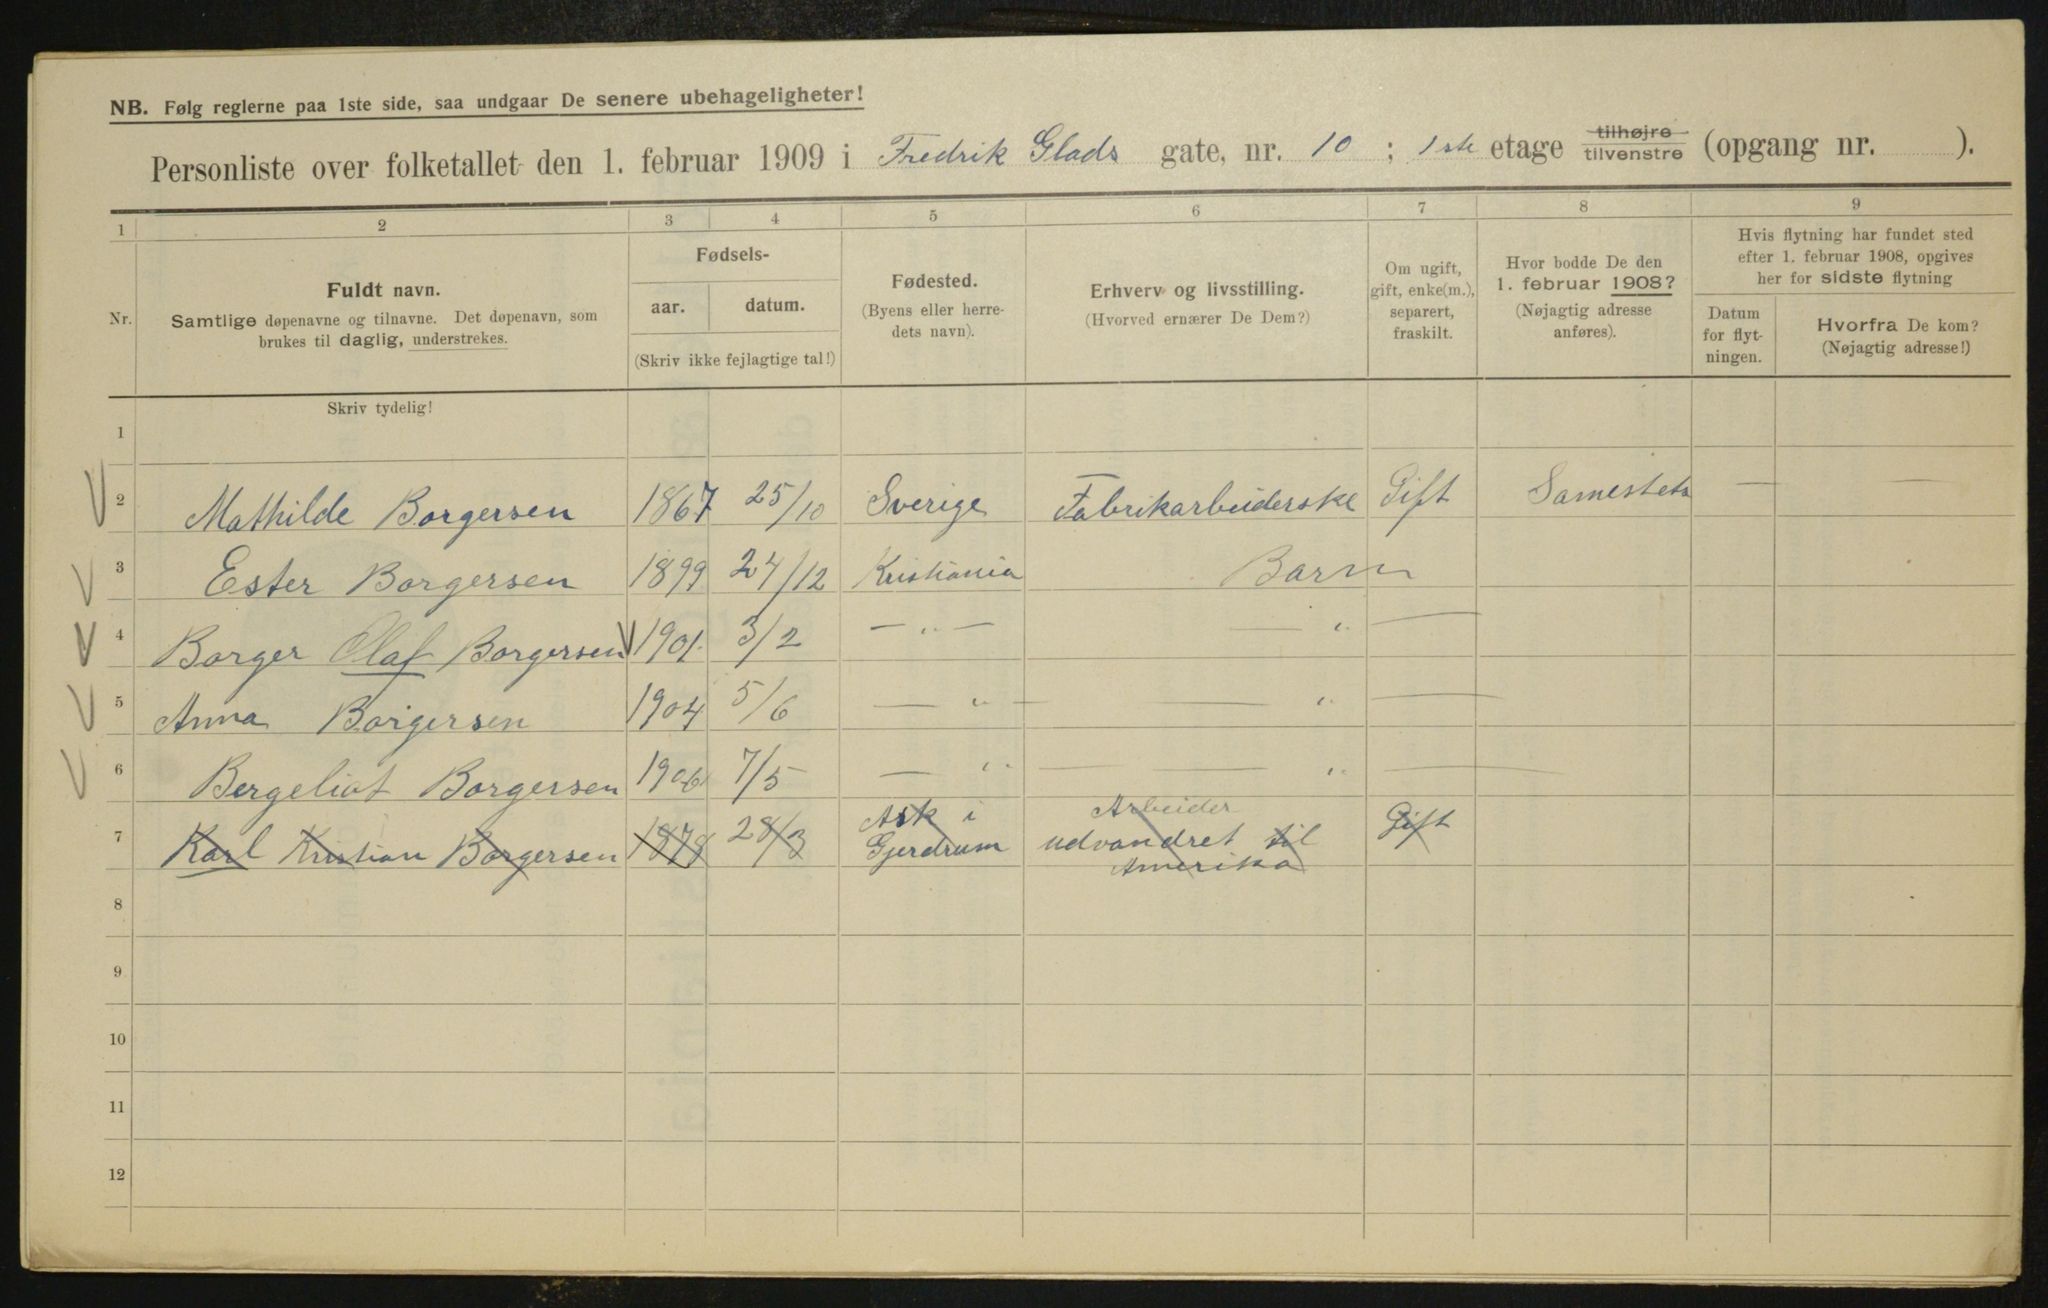 NB. Følg reglerne paa 1ste side, saa undgaar De senere ubehageligheter!
Personliste over folketallet den 1. februar 1909 i Fredrik Glads gate, nr. 10 ; 1ste etage tilhøjre tilvenstre (opgang nr. ).
1 2 3 4 5 6 7 8 9
Nr.
Fuldt navn.
Samtlige døpenavne og tilnavne. Det døpenavn, som
brukes til daglig, understrekes.
Fødsels-
aar. datum.
(Skriv ikke fejlagtige tal!)
Fødested.
(Byens eller herre-
dets navn).
Erhverv og livsstilling.
(Hvorved ernærer De Dem?)
Om ugift,
gift, enke(m.),
separert,
fraskilt.
Hvor bodde De den
1. februar 1908?
(Nøjagtig adresse
anføres).
Hvis flytning har fundet sted
efter 1. februar 1908, opgives
her for sidste flytning
Datum
for flyt-
ningen.
Hvorfra De kom?
(Nøjagtig adresse!)
Skriv tydelig!
1
2 Mathilde Borgersen 1867 25/10 Sverige Fabrikarbeiderske Gift Samesteds — —
3 Ester Borgersen 1899 24/12 Kristiania Barn
4 Borger Olaf Borgersen 1901 3/2 — „ — — „ —
5 Anna Borgersen 1904 5/6 — „ — — „ —
6 Bergeliot Borgersen 1906 7/5 — „ — — „ —
7 Karl Kristian Borgersen 1878 28/3 Ask i Gjerdrum Arbeider udvandret til Amerika Gift
8
9
10
11
12